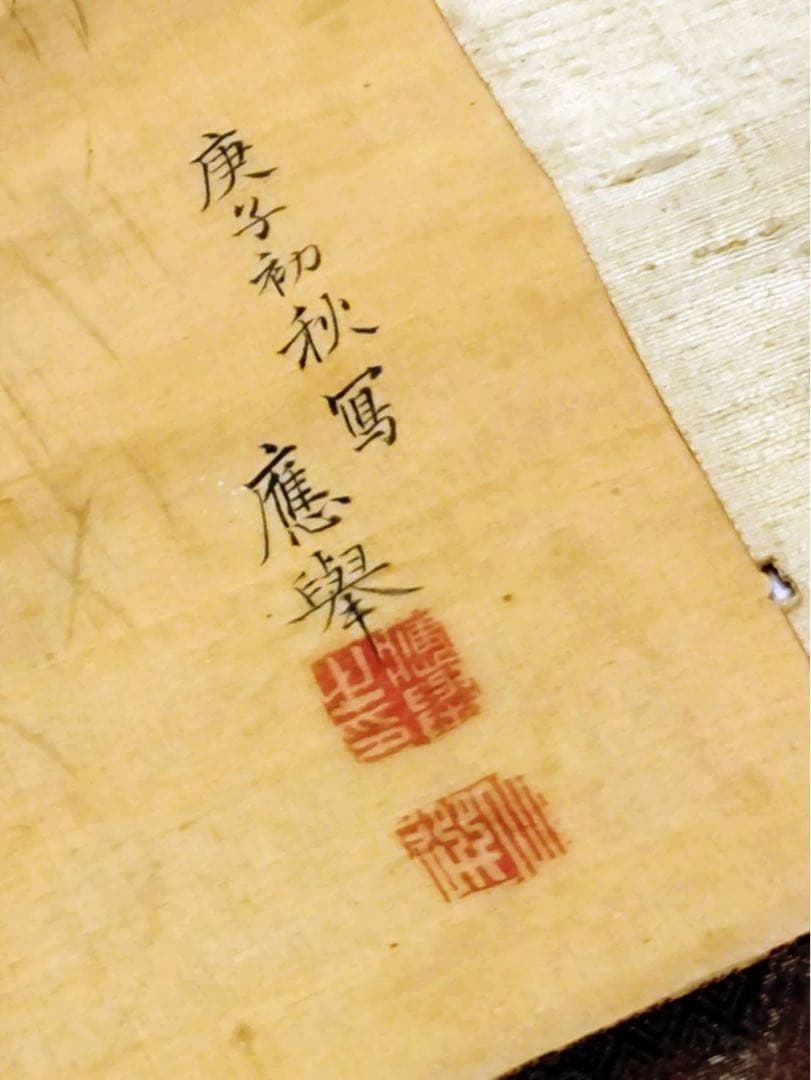 庚子初秋寫
應舉
應舉之印
仲選